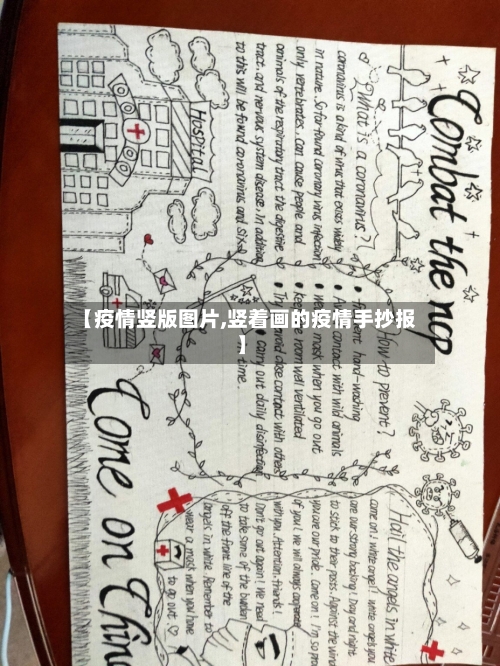 Combat the ncp
What is a coronavirus?
coronavirus is a kind of virus that exists widely
in nature. So far found coronary virus infection
only vertebrates. Can cause people and
animals of the respiratory tract the digestive
tract and nervous system disease. In addition
to this will be found coronavirus and six
Hospital
How to prevent?
hand-washing
contact with wild animals
mask when you go out
room well ventilated
close contact with others
Carry out daily disinfection
time.
【疫情竖版图片,竖着画的疫情手抄报
】
Hail the angels in white
come on! white angel! white angels you
are our strong backing! Day and night
to stick to their posts. Against the wind
you are our pride. Come on! I'm so proud
of you! we will always cooperate
with you. Attention, friends!
Don't go out again! We need
to take some of the burden
off the front line of the
angels in white. Remember to
wear a mask when you have
to go out
Come on China